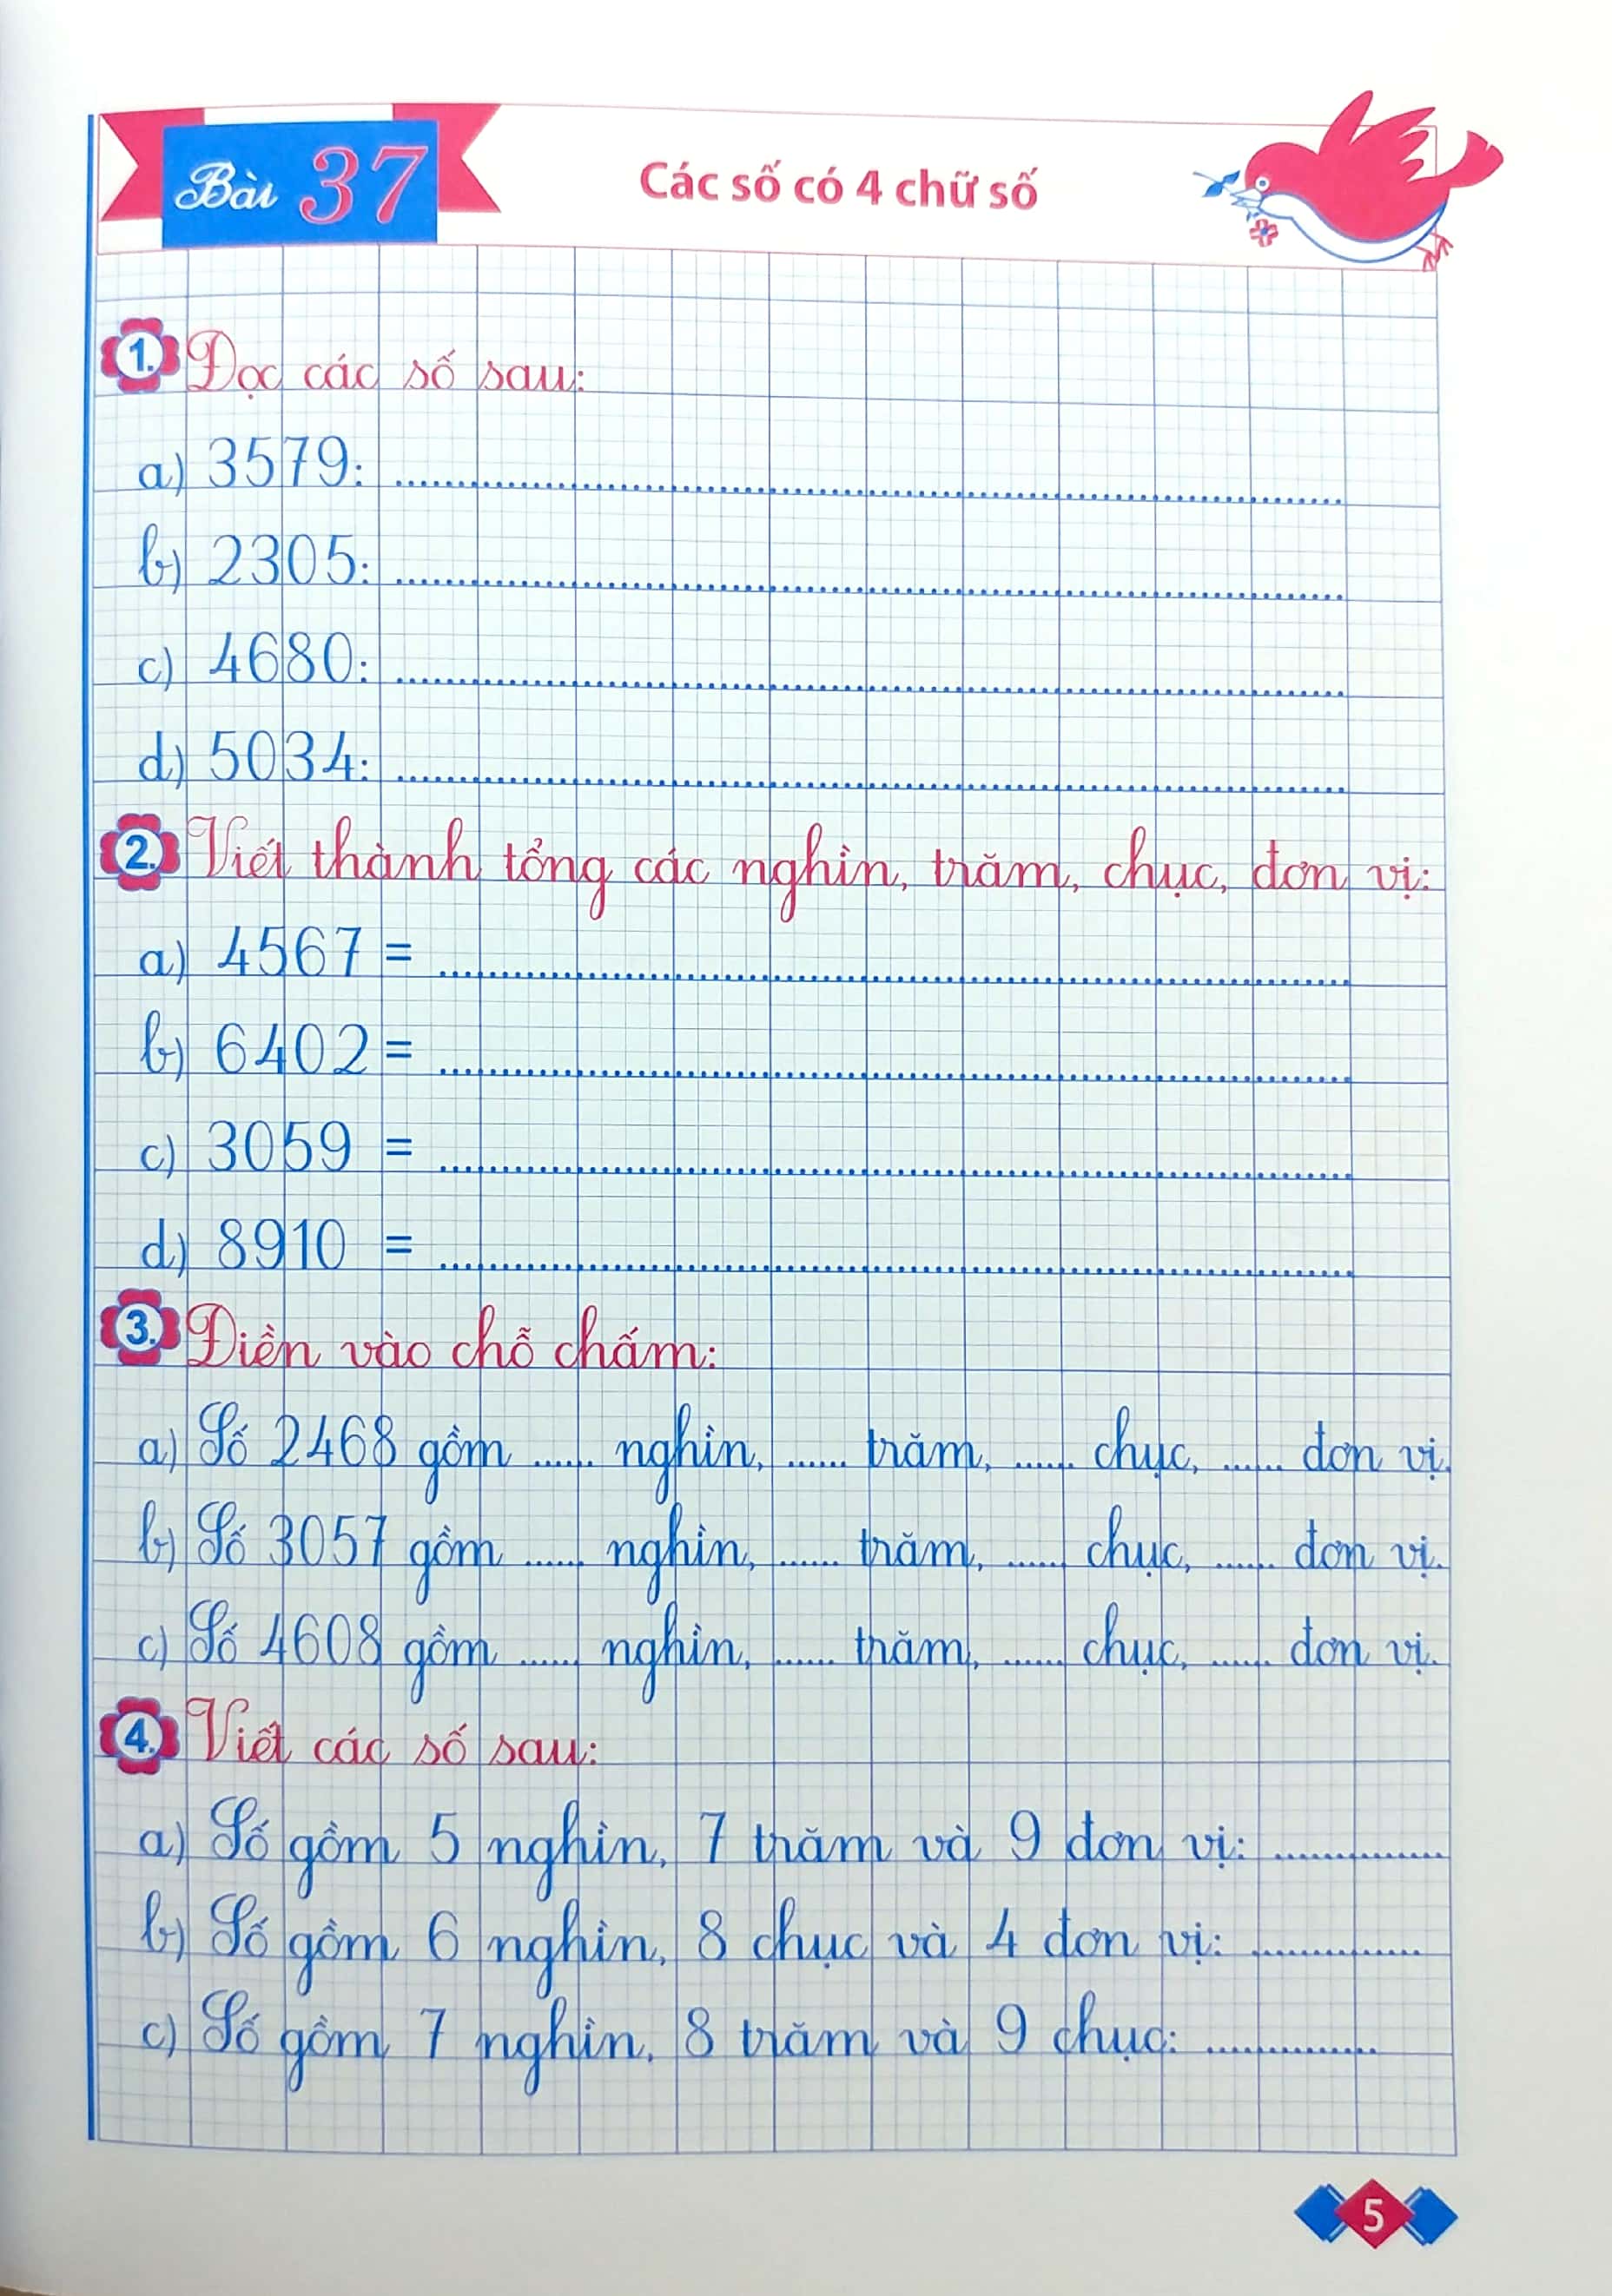 Bài 37
Các số có 4 chữ số
1. Đọc các số sau:
a) 3579: ........................................
b) 2305: ........................................
c) 4680: ........................................
d) 5034: ........................................
2. Viết thành tổng các nghìn, trăm, chục, đơn vị:
a) 4567 = ........................................
b) 6402 = ........................................
c) 3059 = ........................................
d) 8910 = ........................................
3. Điền vào chỗ chấm:
a) Số 2468 gồm ...... nghìn, ...... trăm, ...... chục, ...... đơn vị.
b) Số 3057 gồm ...... nghìn, ...... trăm, ...... chục, ...... đơn vị.
c) Số 4608 gồm ...... nghìn, ...... trăm, ...... chục, ...... đơn vị.
4. Viết các số sau:
a) Số gồm 5 nghìn, 7 trăm và 9 đơn vị: ................
b) Số gồm 6 nghìn, 8 chục và 4 đơn vị: ................
c) Số gồm 7 nghìn, 8 trăm và 9 chục: ................
5